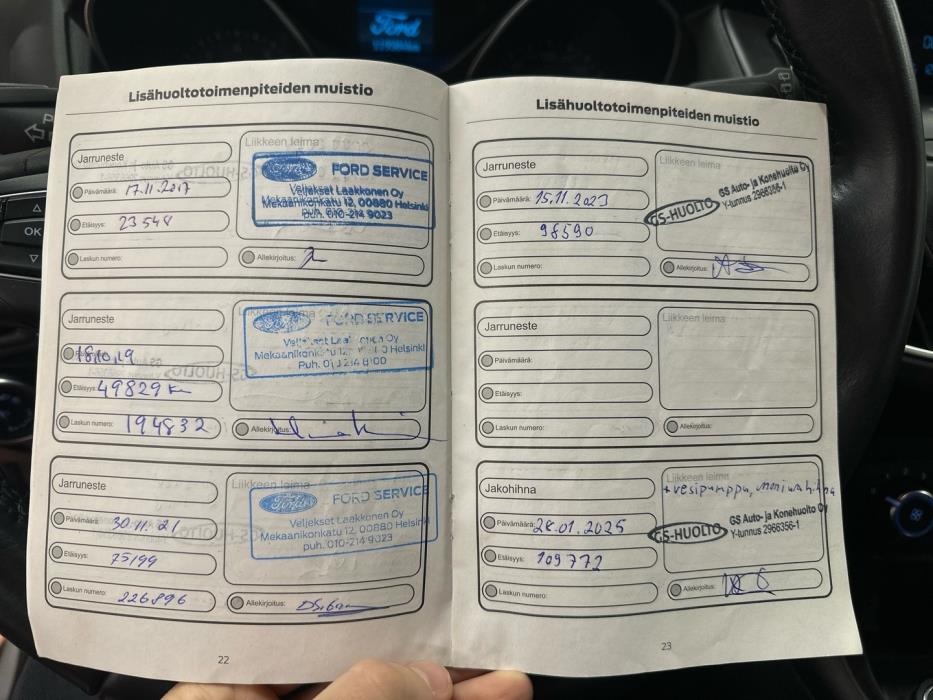 Ford
OK
Lisähuoltotoimenpiteiden muistio
Jarruneste
Liikkeen leima
Päivämäärä: 17.11.2017
Etäisyys: 23548
Laskun numero:
Allekirjoitus:
Ford FORD SERVICE
Veljekset Laakkonen Oy
Mekaanikonkatu 12, 00880 Helsinki
puh. 010-214 9023
Jarruneste
Liikkeen leima
18.10.19
Etäisyys: 49829 km
Laskun numero: 194832
Allekirjoitus:
FORD SERVICE
Mekaanikonkatu Helsinki
Puh.
Jarruneste
Liikkeen leima
Päivämäärä: 30.11.21
Etäisyys: 75199
Laskun numero: 226896
Allekirjoitus:
Ford FORD SERVICE
Veljekset Laakkonen Oy
Mekaanikonkatu 12, 00880 Helsinki
puh. 010-214 9023
22
Lisähuoltotoimenpiteiden muistio
Jarruneste
Liikkeen leima
Päivämäärä: 15.11.2023
Etäisyys: 98590
Laskun numero:
Allekirjoitus:
GS-HUOLTO
GS Auto- ja Konehuolto Oy
Y-tunnus 2966356-1
Jarruneste
Liikkeen leima
Päivämäärä:
Etäisyys:
Laskun numero:
Allekirjoitus:
Jakohihna
Liikkeen leima
+ vesipumppu, moniurahihna
Päivämäärä: 28.01.2025
Etäisyys: 109772
Laskun numero:
Allekirjoitus:
GS-HUOLTO
GS Auto- ja Konehuolto Oy
Y-tunnus 2966356-1
23